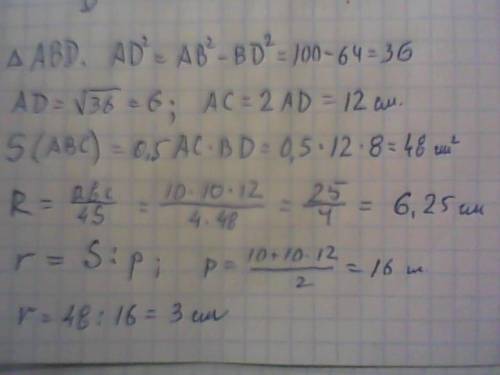 △ ABD. AD² = AB² - BD² = 100 - 64 = 36
AD = √36 = 6; AC = 2AD = 12 см.
S(ABC) = 0,5 AC · BD = 0,5 · 12 · 8 = 48 см²
R = abc/4S = 10·10·12/4·48 = 25/4 = 6,25 см
r = S : p; p = 10+10·12/2 = 16 м
r = 48 : 16 = 3 см